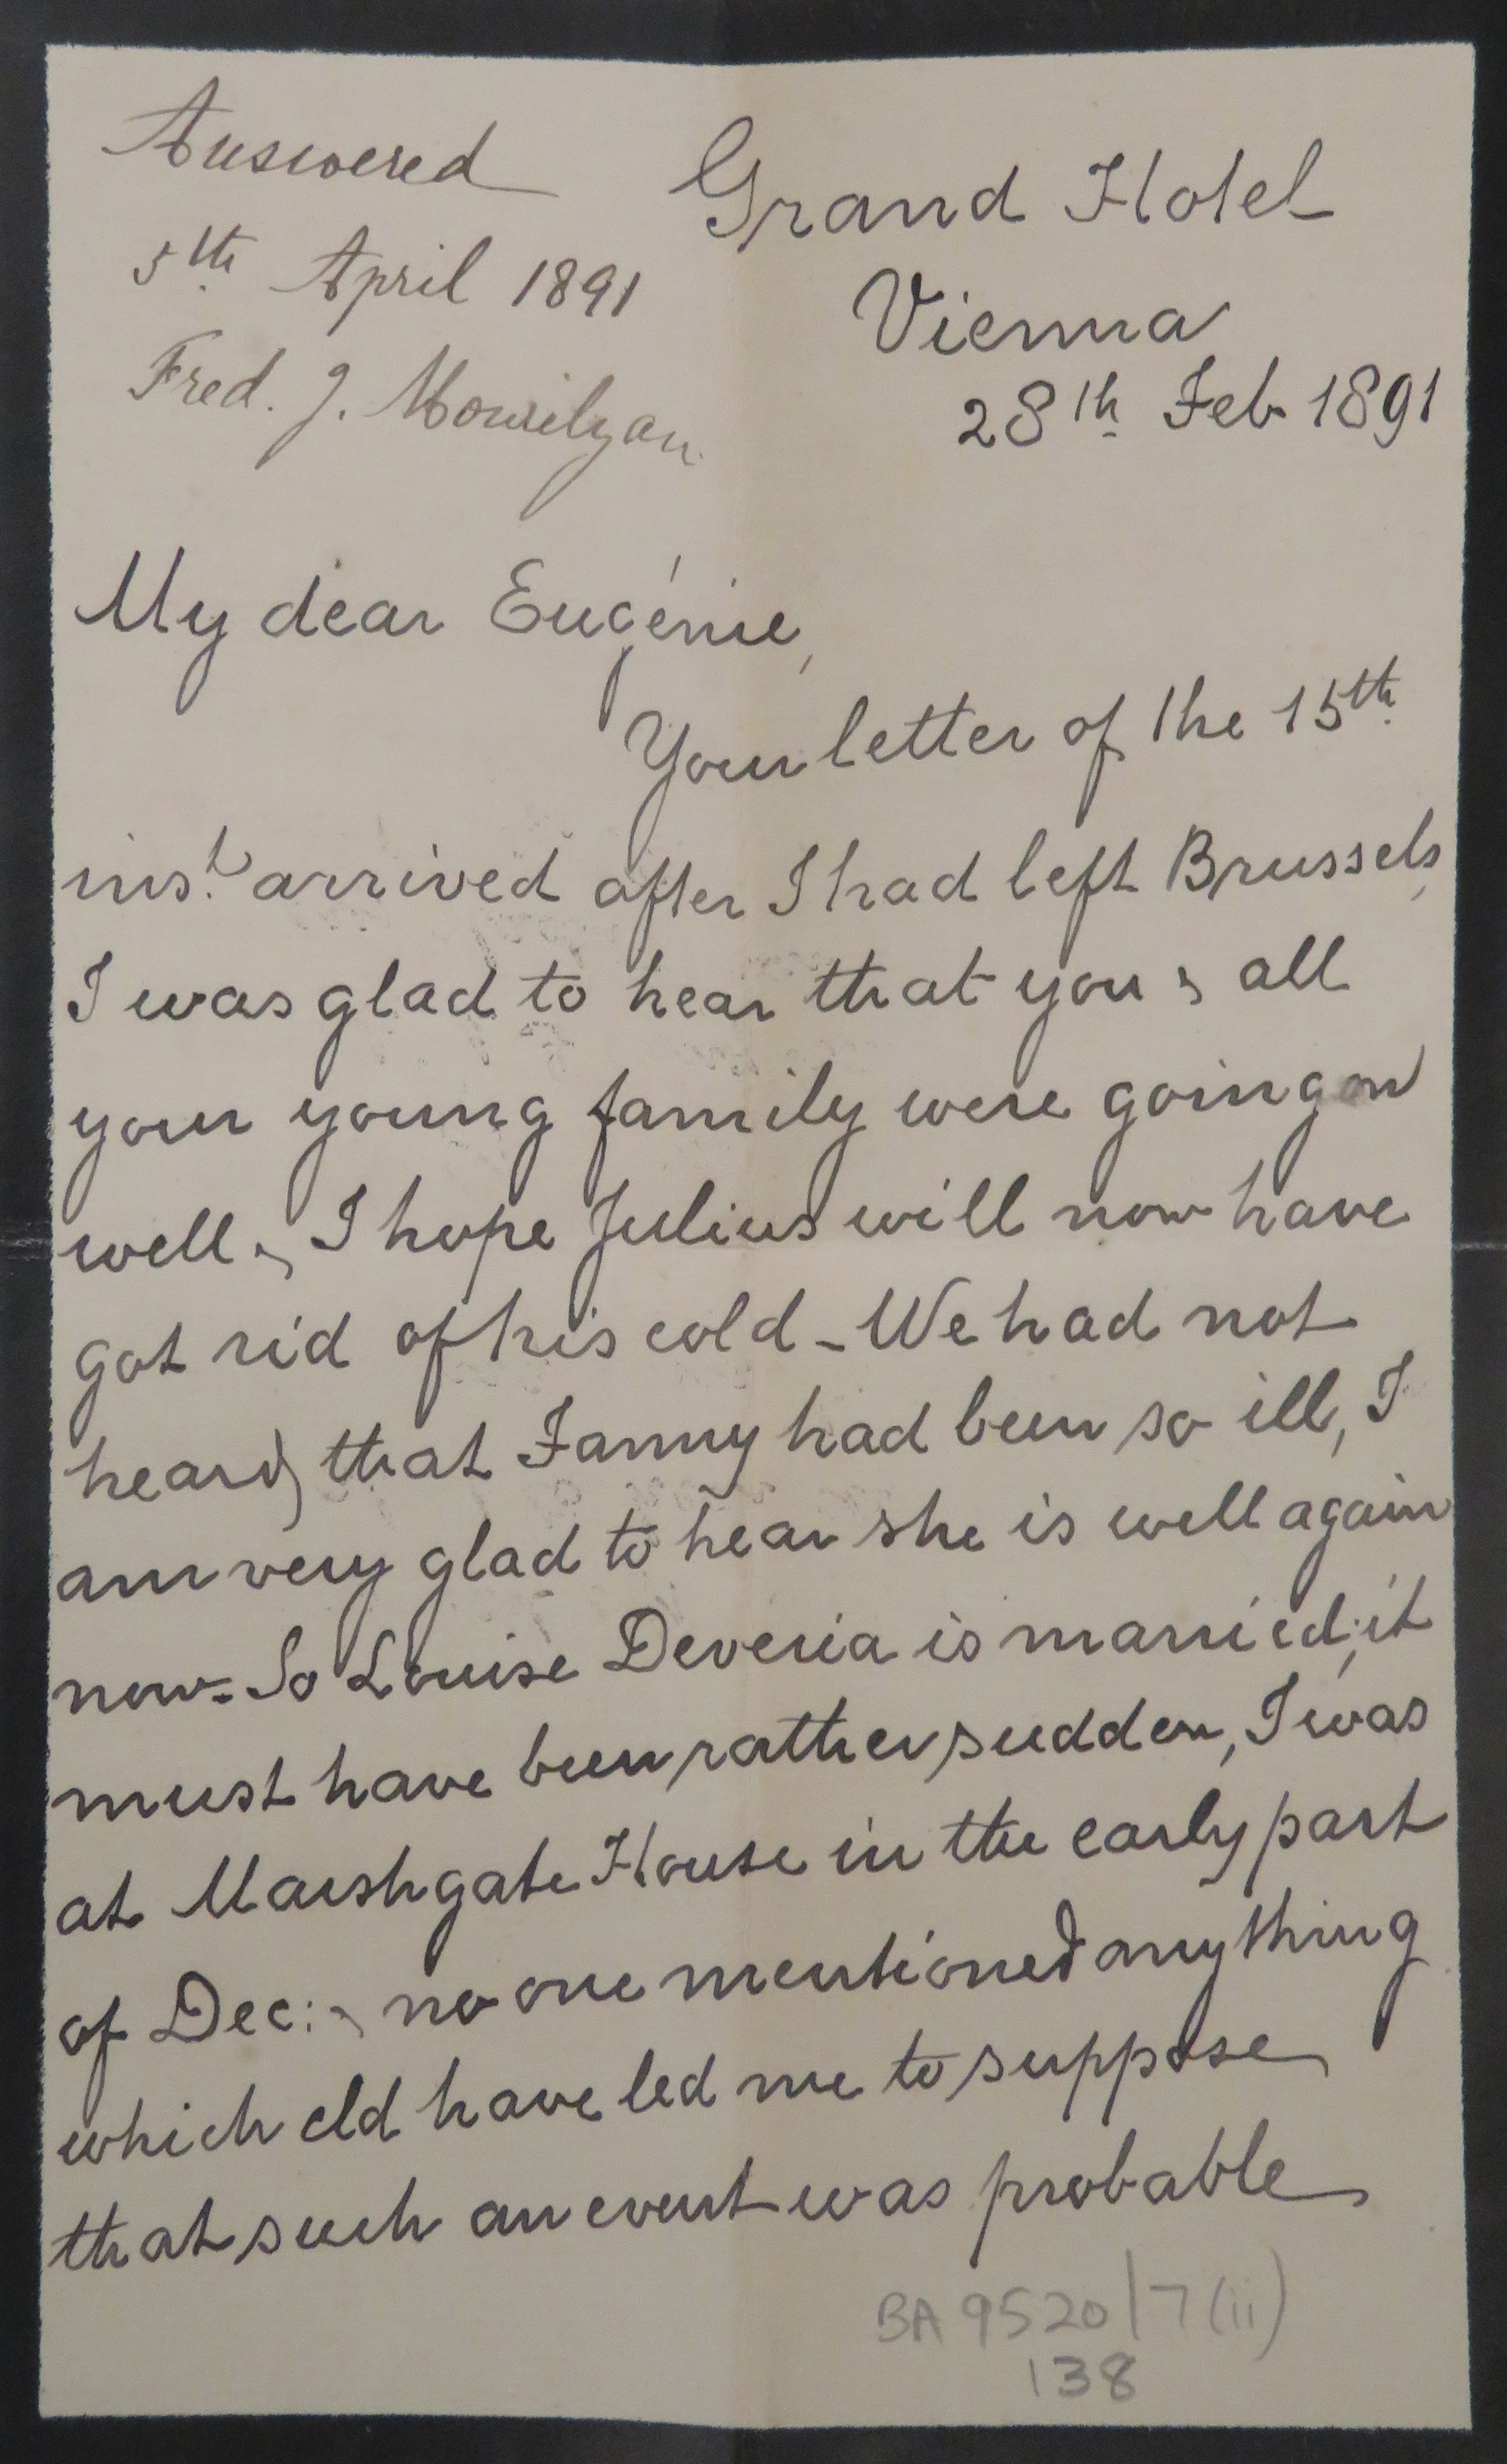 Answered
5th April 1891
Fred. J. Mouzilyan
Grand Hotel
Vienna
28th Feb 1891
My dear Eugénie,
Your letter of the 15th
inst arrived after I had left Brussels,
I was glad to hear that you & all
your young family were going on
well & I hope Julius will now have
got rid of his cold - We had not
heard that Fanny had been so ill, I
am very glad to hear she is well again
now - So Louise Deveria is married; it
must have been rather sudden, I was
at Marshgate House in the early part
of Dec: & no one mentioned anything
which cld have led me to suppose
that such an event was probable
BA 9520/7(ii)
138